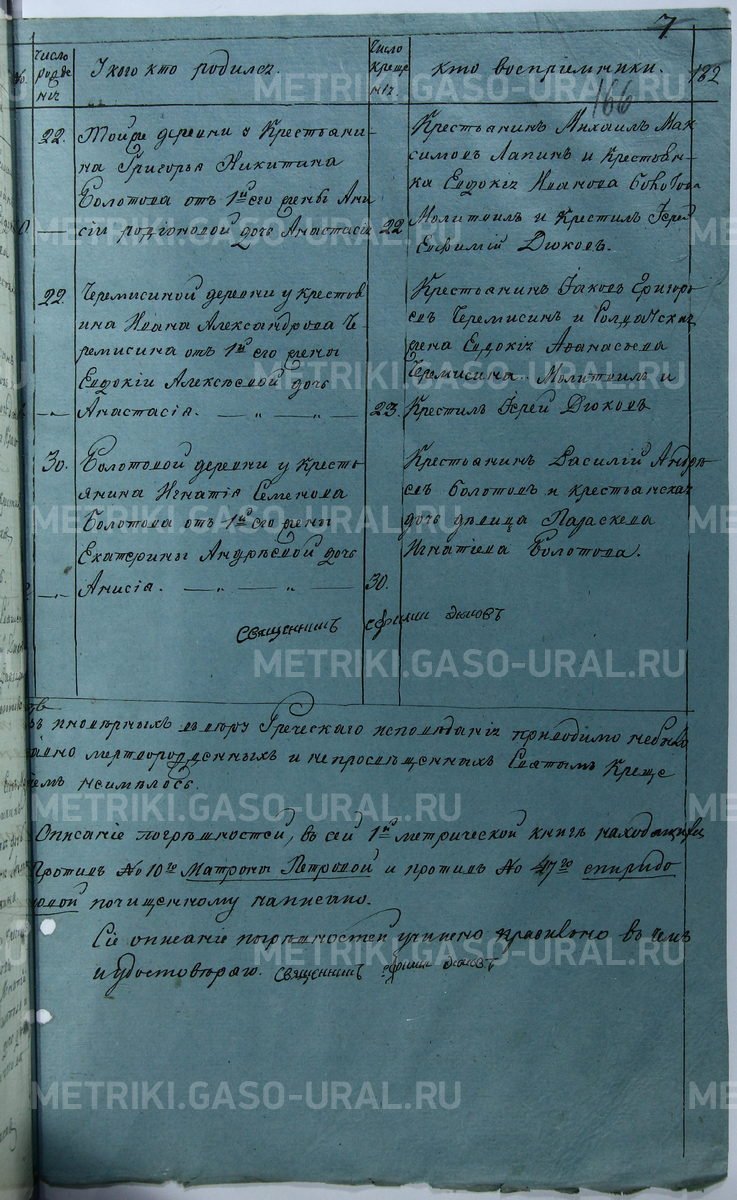 7
Число рожденiя
У кого кто родился.
Число крещенiя
Кто восприемники.
182
166
22. Тойже деревни у Крестьяни-
на Григорья Никитина
Болотова отъ 1й его жены Ани
сiи Родiоновой дочь Анастасiя
22
Крестьянинъ Михаилъ Мак
симовъ Лапинъ и Крестьян-
ка Евдокiя Иванова
Молитвилъ и Крестилъ Iерей
Евфимiй Дюковъ.
22. Черемисиной деревни у Крестья
нина Ивана Александрова Че
ремисина отъ 1й его жены
Евдокiи Алексѣевой дочь
Анастасiя. — „ — „ —
23.
Крестьянинъ Iаковъ Григорь
евъ Черемисинъ и Солдатская
жена Евдокiя Аѳанасьева
Черемисина. Молитвилъ и
Крестилъ Iерей Дюковъ
30. Болотовой деревни у Кресть
янина Игнатiя Семенова
Болотова отъ 1й его жены
Екатерины Андрѣевой дочь
Анисiя. — „ — „ —
30.
Крестьянинъ Василiй Андрѣ
евъ Болотовъ и крестьянская
дочь дѣвица Параскева
Игнатiева Болотова.
Священникъ Ефимiй Дюковъ
иновѣрныхъ въ вѣру Греческаго исповѣданiя приводимо небыло
мертворожденныхъ и непросвѣщенныхъ Святымъ Креще
емъ неимѣлось.
Описанiе погрѣшностей, въ сей 1й метрической книгѣ находящихся
Противъ No 10го Матроны Петровой и противъ No 47го Спиридо
новой почищенному написано.
Сiе описанiе погрѣшностей учинено правильно въ чемъ
и удостовѣряю. Священникъ Ефимiй Дюковъ
METRIKI.GASO-URAL.RU